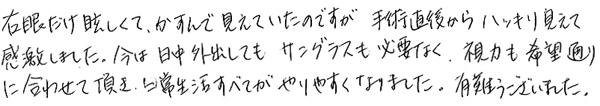 右眼だけ眩しくて、かすんで見えていたのですが 手術直後からハッキリ見えて
感激しました。今は日中外出しても サングラスも必要なく、視力も希望通り
に合わせて頂き、日常生活すべてが やりやすくなりました。有難うございました。